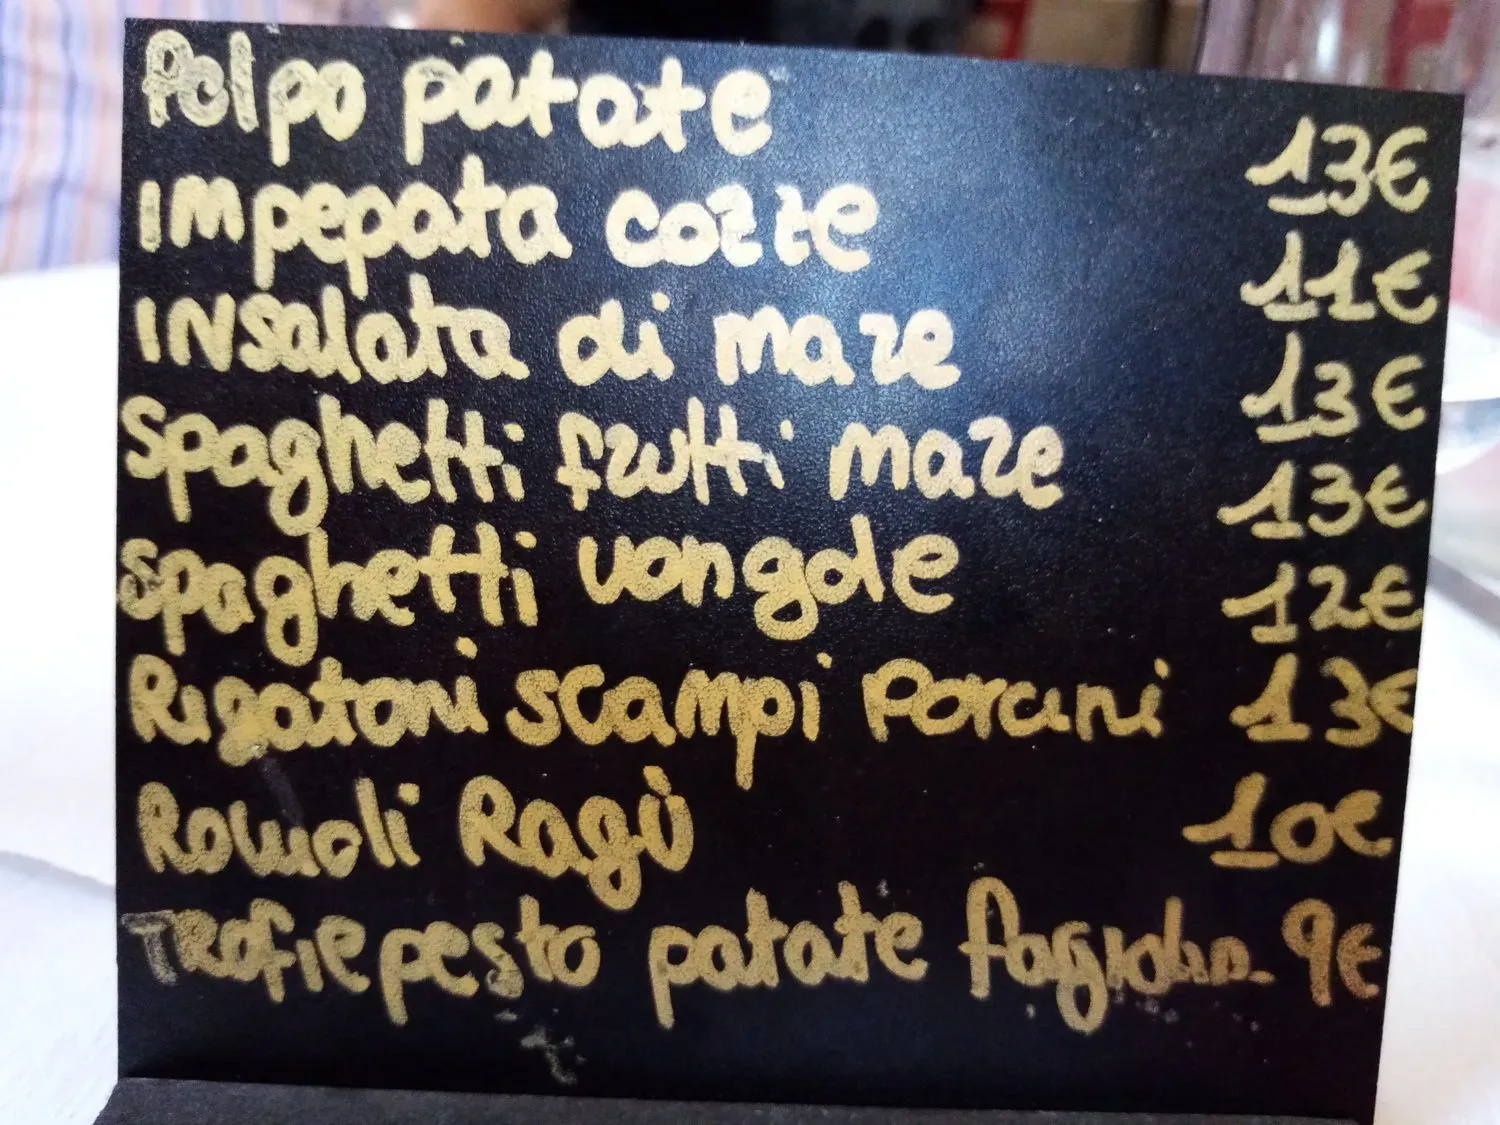 Polpo patate 13€
Impepata cozze 11€
Insalata di mare 13€
Spaghetti frutti mare 13€
Spaghetti vongole 12€
Rigatoni scampi Porcini 13€
Ravioli Ragù 10€
Trofie pesto patate fagiolin. 9€